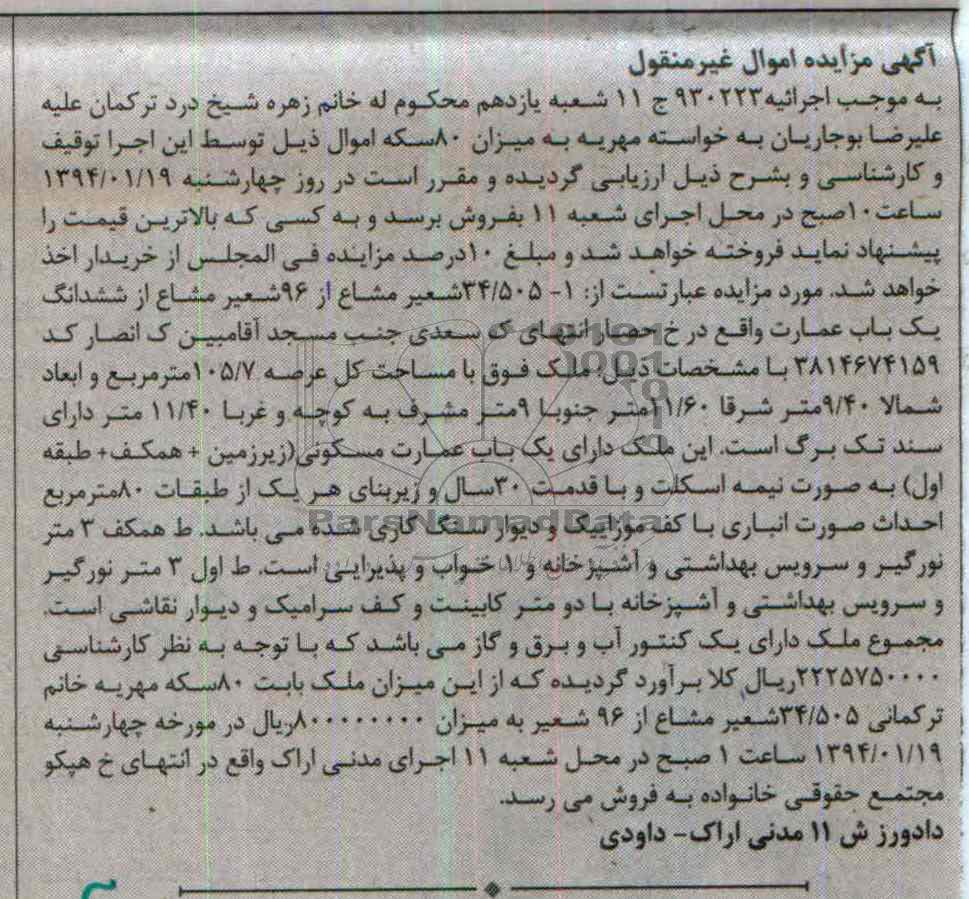 آگهی مزایده اموال غیرمنقول
به موجب اجرائیه۹۳۰۲۲۳ ج ۱۱ شعبه یازدهم محکوم له خانم زهره شیخ درد ترکمان علیه
علیرضا بوجاریان به خواسته مهریه به میزان ۸۰سکه اموال ذیل توسط این اجرا توقیف
و کارشناسی و بشرح ذیل ارزیابی گردیده و مقرر است در روز چهارشنبه ۱۳۹۴/۰۱/۱۹
ساعت۱۰صبح در محل اجرای شعبه ۱۱ بفروش برسد و به کسی که بالاترین قیمت را
پیشنهاد نماید فروخته خواهد شد و مبلغ ۱۰درصد مزاینده فی المجلس از خریدار اخذ
خواهد شد. مورد مزایده عبارتست از: ۱- ۳۴/۵۰۵شعیر مشاع از ۹۶شعیر مشاع از ششدانگ
یک باب عمارت واقع در خ حصار انتهای ک سعدی جنب مسجد آقامبین ک انصار کد
۳۸۱۴۶۷۴۱۵۹ با مشخصات ذیل: ملک فوق با مساحت کل عرصه ۱۰۵/۷مترمربع و ابعاد
شمالا ۹/۴۰متر شرقا ۱۱/۶۰متر جنوبا ۹متر مشرف به کوچه و غربا ۱۱/۴۰ متر دارای
سند تک برگ است. این ملک دارای یک باب عمارت مسکونی(زیرزمین + همکف+ طبقه
اول) به صورت نیمه اسکلت و با قدمت ۳۰سال و زیربنای هر یک از طبقات ۸۰مترمربع
احداث صورت انباری با کف موزاییک و دیوار سنگ کاری شده می باشد. ط همکف ۳ متر
نورگیر و سرویس بهداشتی و آشپزخانه و ۱ خواب و پذیرایی است. ط اول ۳ متر نورگیر
و سرویس بهداشتی و آشپزخانه با دو متر کابینت و کف سرامیک و دیوار نقاشی است.
مجموع ملک دارای یک کنتور آب و برق و گاز می باشد که با توجه به نظر کارشناسی
۲۲۲۵۷۵۰۰۰۰ریال کلا برآورد گردیده که از این میزان ملک بابت ۸۰سکه مهریه خانم
ترکمانی ۳۴/۵۰۵شعیر مشاع از ۹۶ شعیر به میزان ۸۰۰۰۰۰۰۰۰ریال در مورخه چهارشنبه
۱۳۹۴/۰۱/۱۹ ساعت ۱ صبح در محل شعبه ۱۱ اجرای مدنی اراک واقع در انتهای خ هپکو
مجتمع حقوقی خانواده به فروش می رسد.
دادورز ش ۱۱ مدنی اراک- داودی
ParsNamadData